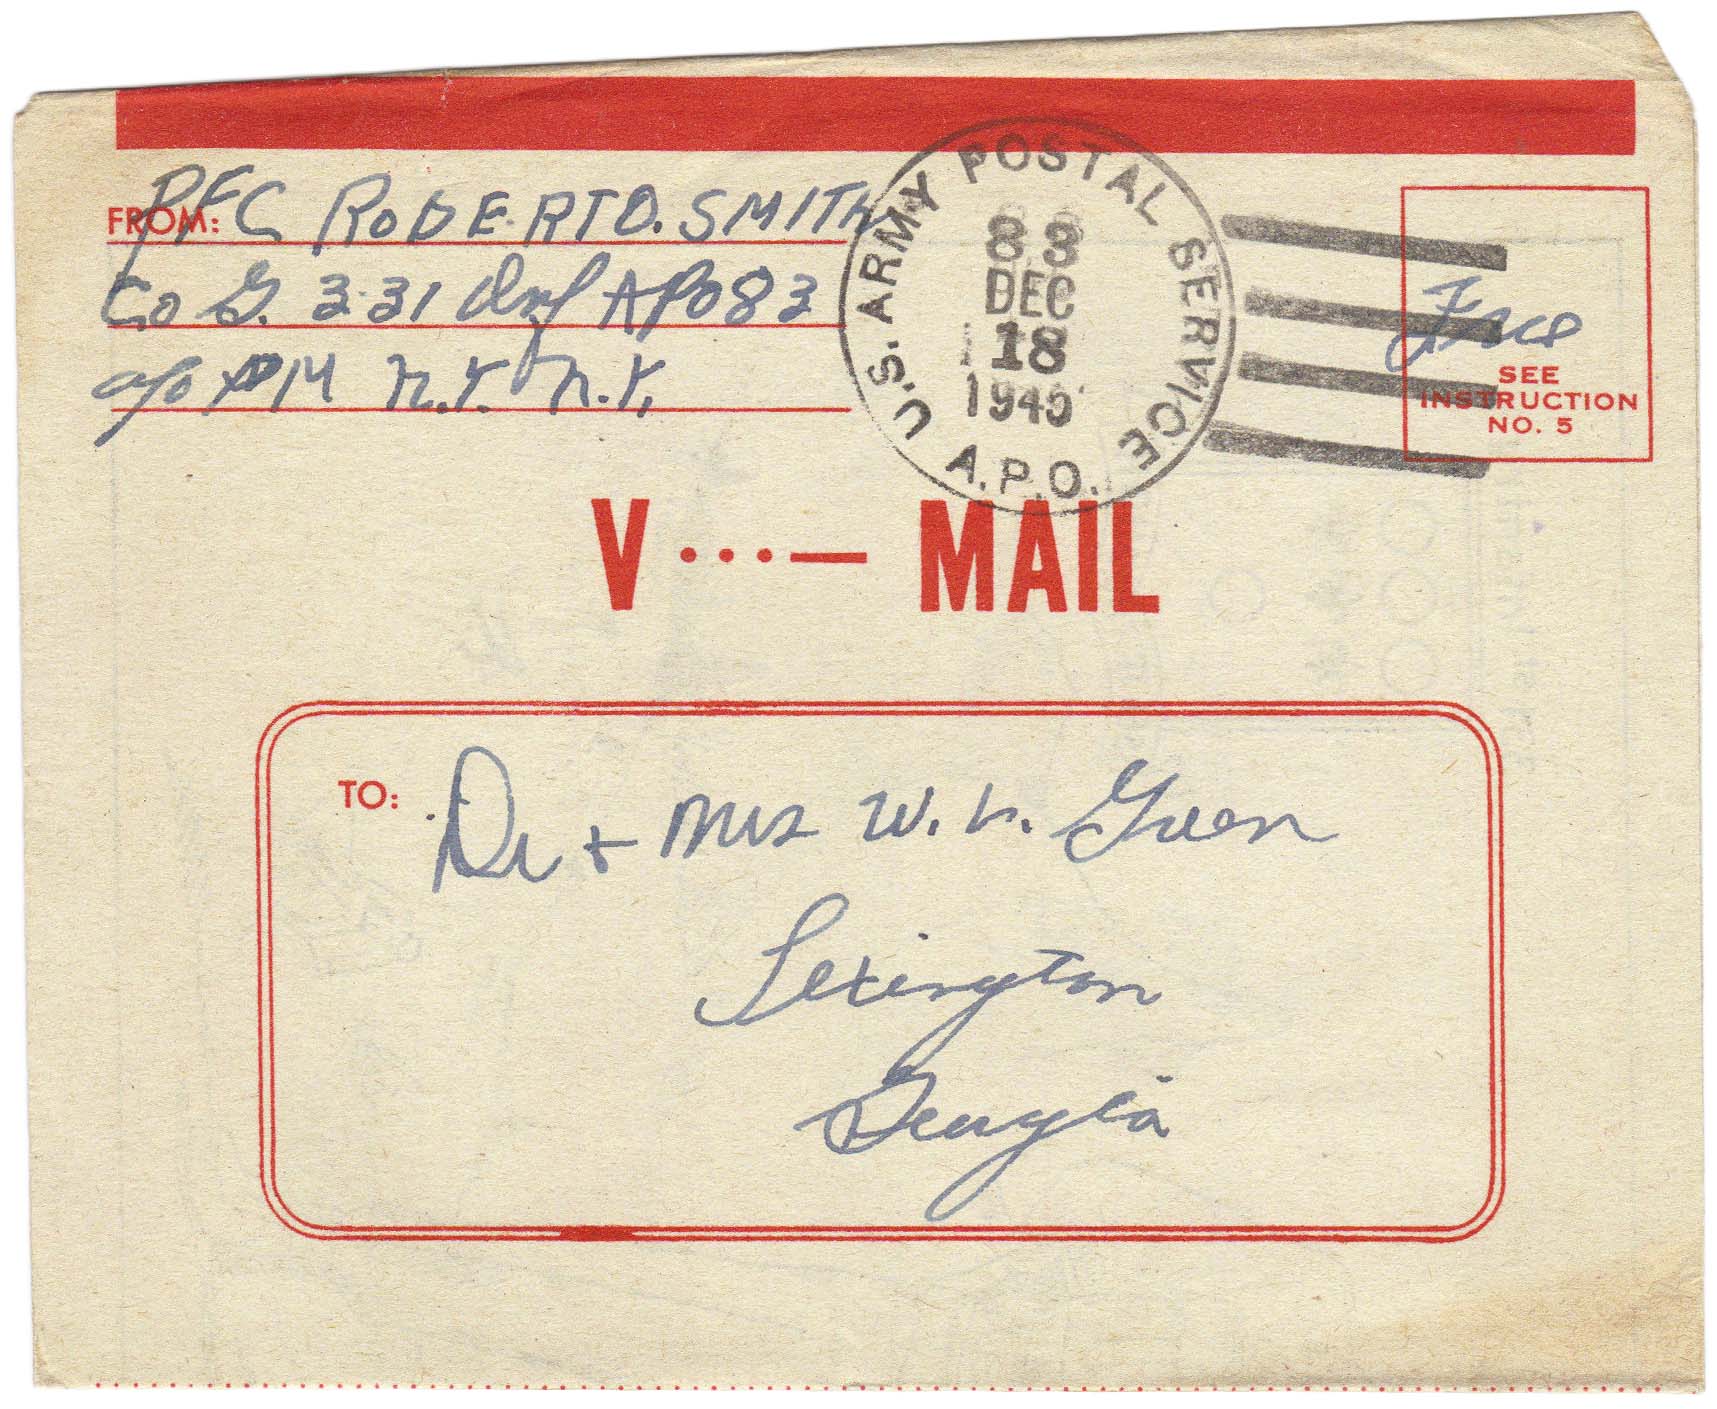 FROM: PFC ROBERT D. SMITH
Co G. 331 Inf APO 83
c/o PM N.Y. N.Y.
U.S. ARMY POSTAL SERVICE
83
DEC
18
1945
A.P.O.
Free
SEE
INSTRUCTION
NO. 5
V ···— MAIL
TO: Dr + Mrs W. L. Green
Lexington
Georgia